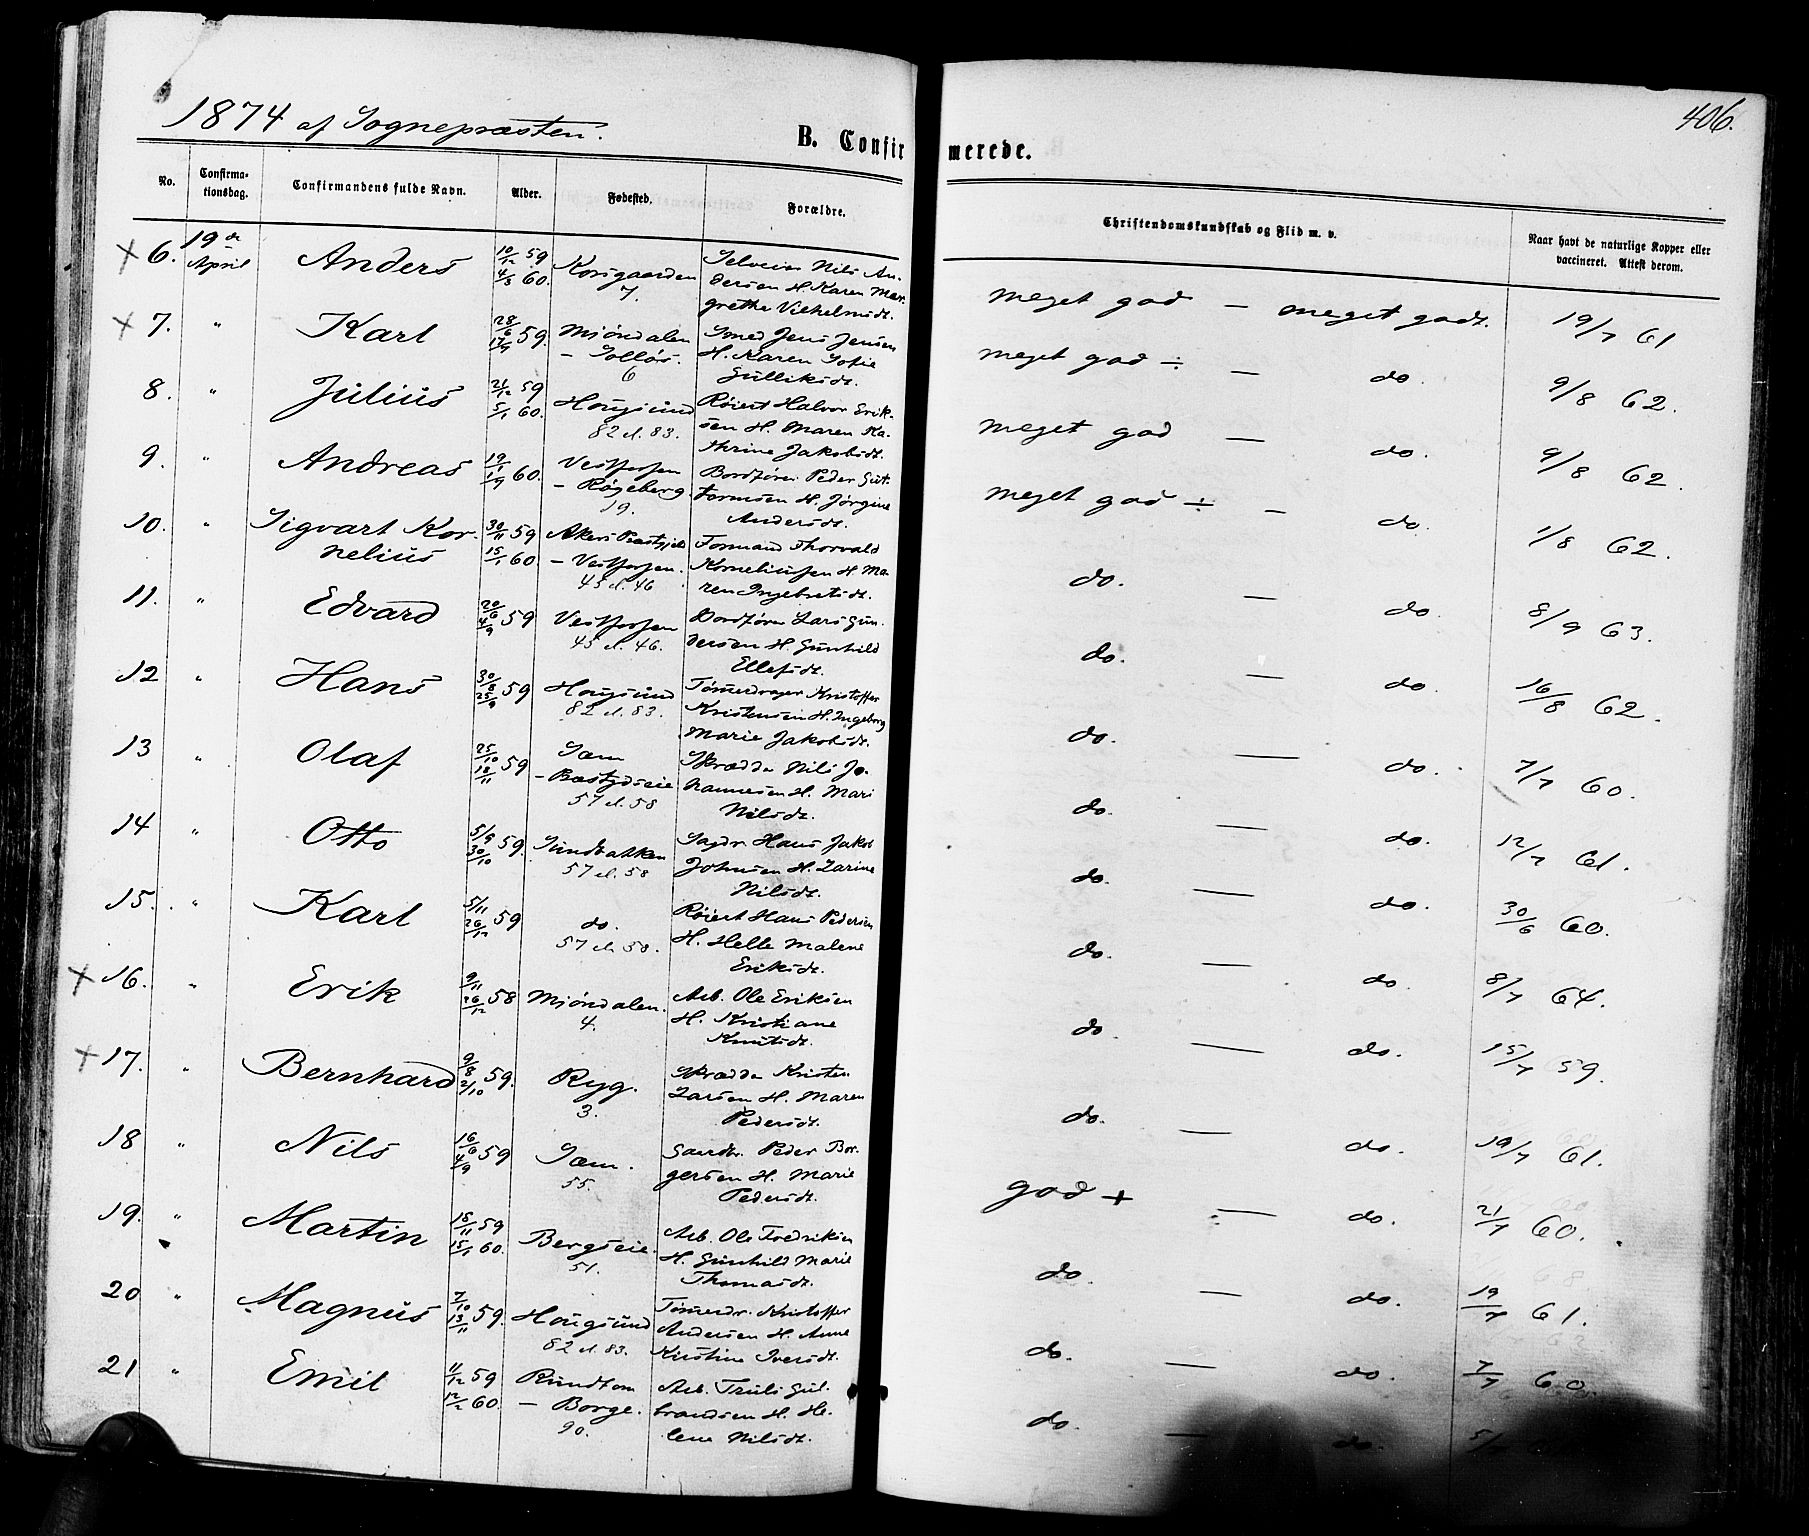 406.
1874 af Sognepræsten.
B. Confirmerede.
No.
Confirma-
tionsdag.
Confirmandens fulde Navn.
Alder.
Fødested.
Forældre.
Christendomskundskab og Flid m. v.
Naar havt de naturlige Kopper eller
vaccineret. Attest derom.
+ 6. 19de April Anders 10/12 59 4/3 60. Korsgaarden 7. Selveier Nils An-
dersen H. Karen Mar-
grethe Vilhelmsdt.
meget god — meget godt. 19/7 61
+ 7. " Karl 28/6 17/9 59. Mjøndalen – Solløs. 6 Smed Jens Jensen
H. Karen Sofie
Gulliksdt.
meget god ÷ — do. 9/8 62.
8. " Julius 21/12 59 5/1 60. Hougsund 82 el. 83. Røiert Halvor Erik-
sen H. Maren Ka-
thrine Jakobsdt.
meget god — do. 9/8 62.
9. " Andreas 19/1 1/9 60. Vestfossen – Røgeberg 19. Bordtører Peder Gut-
tormsen H. Jørgine
Andersdt.
meget god ÷ — do. 1/8 62.
10. " Sigvart Kor-
nelius 30/11 59 15/1 60 Akers Præstgjeld – Vestfossen. 45 el. 46 Formand Thorvald
Korneliussen H. Ma-
ren Ingebretsdt.
do. — do. 8/9 63.
11. " Edvard 20/6 4/9 59 Vestfossen 45 el. 46. Bordtører Lars Gun-
dersen H. Gunhild
Ellefsdt.
do. — do. 16/8 62.
12 " Hans 30/8 25/9 59 Hougsund 82 el. 83. Tømmerdrager Kristoffer
Kristensen H. Ingeborg
Marie Jakobsdt.
do. — do. 7/7 60.
13 " Olaf 25/10 18/11 59 Sæm – Bæstydseie 57 el. 58 Skrædder Nils Jo-
hannesen H. Mari
Nilsdt.
do. — do. 12/7 61.
14 " Otto 5/9 30/10 59. Sundbakken 57 el. 58 Sagdr. Hans Jakob
Johnsen H. Larine
Nilsdt.
do. — do. 30/6 60.
15. " Karl 5/11 26/12 59 do. 57 el. 58. Røiert Hans Pedersen
H. Helle Malene
Eriksdt.
do. — do. 8/7 64.
+ 16. " Erik 9/11 26/12 58 Mjøndalen. 4. Arb. Ole Eriksen
H. Kristiane
Knutsdt.
do. — do. 15/7 59.
+ 17. " Bernhard 9/8 2/10 59. Ryg. 3. Skrædder Kristen
Larsen H. Maren
Pedersdt.
do. — do. 19/7 61.
18 " Nils 16/6 4/9 59 Sæm. 55. Gaardbr. Peder Bor-
gersen H. Marie
Pedersdt.
god + — do. 21/7 60.
19. " Martin 18/11 59 15/1 60. Bergseie. 51. Arb. Ole Fredriksen
H. Gunhild Marie
Thomasdt.
do. — do. 19/7 61.
20 " Magnus 7/10 13/11 59. Hougsund 82 el. 83. Tømmerdr. Kristoffer
Andersen H. Anne
Kirstine Iversdt.
do. — do. 7/7 60.
21 " Emil 11/12 59 12/2 60. Rundtom – Borge. 90. Arb. Truls Gul-
brandsen H. He-
lene Nilsdt.
do. — do.